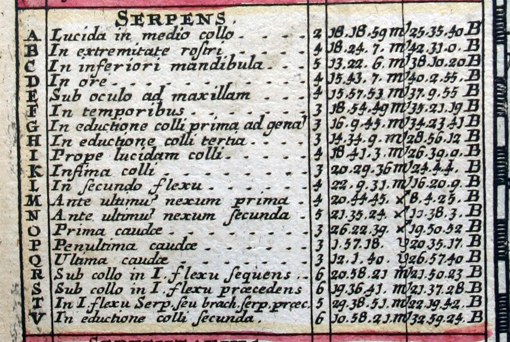 SERPENS.
A Lucida in medio collo 2 18.18.59 ♏ 25.35.40 B
B In extremitate rostri 4 18.24.7. ♏ 42.31.0. B
C In inferiori mandibula 5 13.22.6. ♏ 38.10.20 B
D In ore 4 15.43.7. ♏ 40.2.55. B
E Sub oculo ad maxillam 4 15.57.53 ♏ 37.9.55 B
F In temporibus 3 18.54.49 ♏ 35.21.19 B
G In eductione colli prima ad gena 3 16.9.43. ♏ 34.23.41 B
H In eductione colli tertia 3 14.34.9. ♏ 28.56.12 B
I Prope lucidam colli 4 18.41.3. ♏ 26.39.0. B
K Infima colli 3 20.29.36 ♏ 24.4.4. B
L In secundo flexu 4 22.9.31. ♏ 16.20.9. B
M Ante ultimũ nexum prima 4 20.44.45. ♐ 8.4.25. B
N Ante ultimũ nexum secunda 5 21.35.24. ♐ 10.38.3. B
O Prima caudæ 3 26.22.39. ♐ 19.50.52 B
P Penultima caudæ 3 1.57.18. ♑ 20.35.17. B
Q Ultima caudæ 3 12.1.40. ♑ 26.57.40 B
R Sub collo in I. flexu sequens 6 20.58.21 ♏ 21.50.23 B
S Sub collo in I. flexu præcedens 6 19.36.41. ♏ 21.37.28 B
T In I. flexu Serp. seu brach. serp. præc. 5 29.38.51. ♏ 22.19.42. B
V In eductione colli secunda 6 10.58.21 ♏ 32.59.24. B